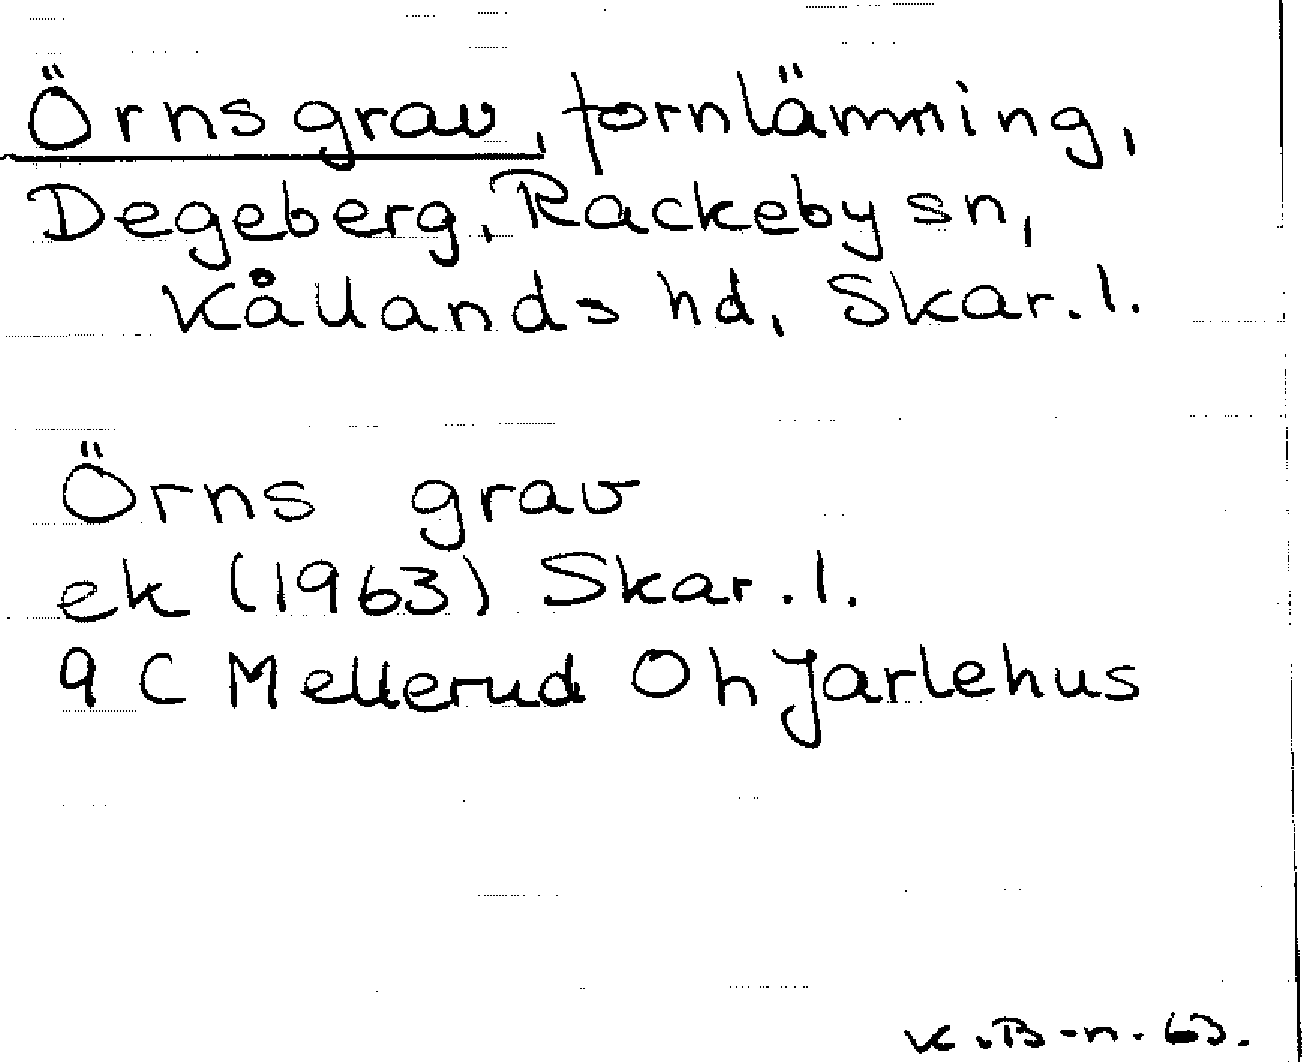 Örnsgrav, fornlämning,
Degeberg, Rackeby sn,
Kållands hd, Skar. l.
Örns grav
ek (1963) Skar. l.
9 C Mellerud Oh Jarlehus
K.B-n. 63.